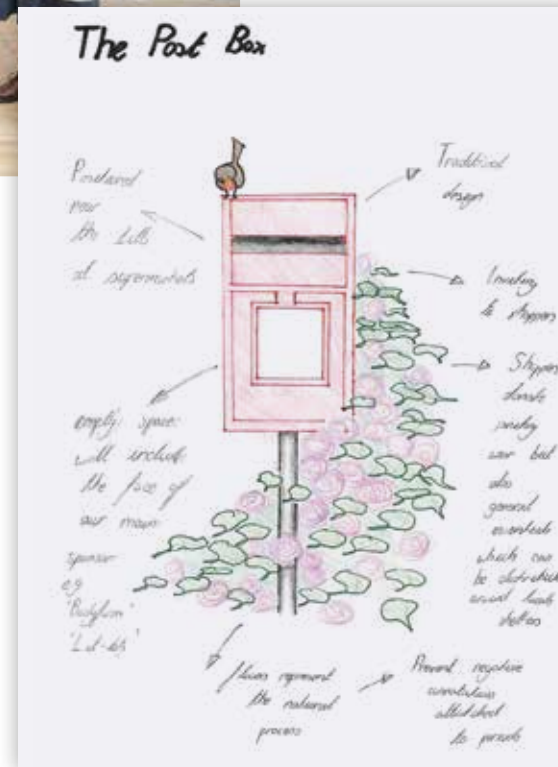 The Post Box
Positioned
near
the tills
at supermarkets
Traditional
design
Inviting
to shoppers
Shoppers
donate
sanitary
wear but
also
general
essentials
which can
be distributed
around
shelters
empty space:
will include
the face of
our main
sponsor
eg
'Bodyform'
'Lil-lets'
flowers represent
the natural
process
Prevent negative
connotations
attatched
to periods